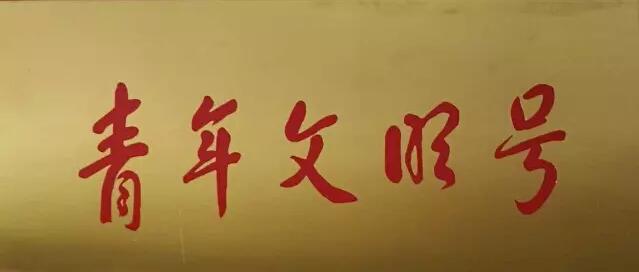 青年文明号